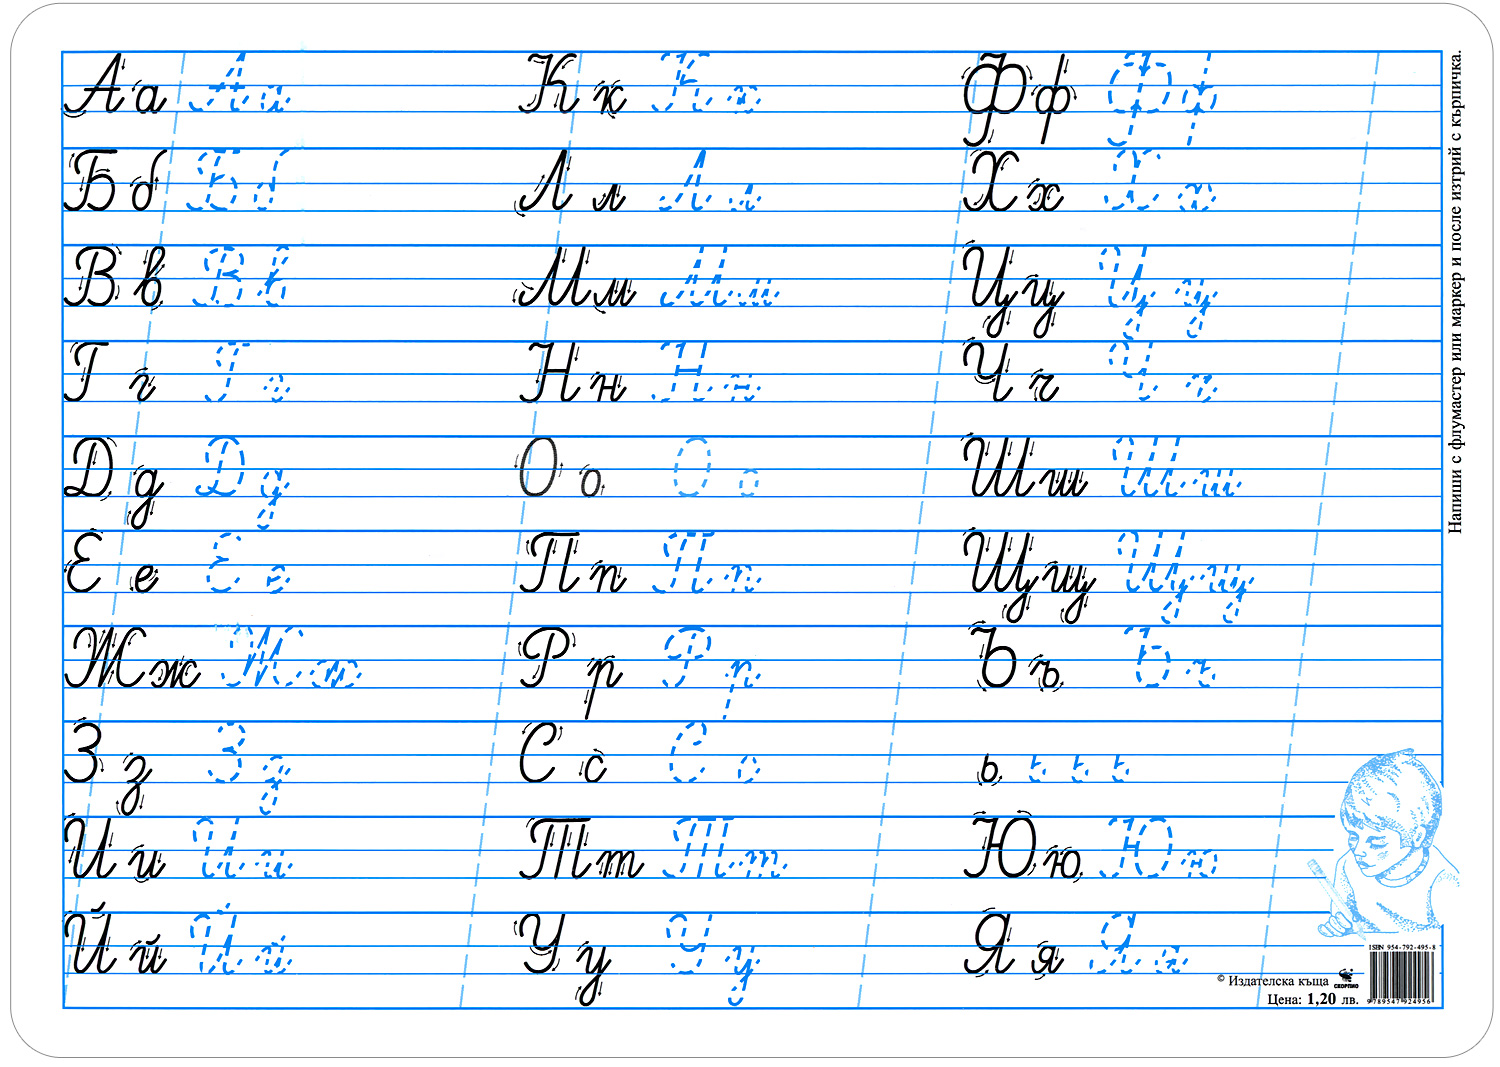 Аа Аа
Бб Бб
Вв Вв
Гг Гг
Дд Дд
Ее Ее
Жж Жж
Зз Зз
Ии Ии
Йй Йй
Кк Кк
Лл Лл
Мм Мм
Нн Нн
Оо Оо
Пп Пп
Рр Рр
Сс Сс
Тт Тт
Уу Уу
Фф Фф
Хх Хх
Цц Цц
Чч Чч
Шш Шш
Щщ Щщ
Ъъ Ъъ
ь ь ь ь
Юю Юю
Яя Яя
Напиши с флумастер или маркер и после изтрий с кърпичка.
ISBN 954-792-495-8
9789547924956
© Издателска къща СКОРПИО
Цена: 1,20 лв.